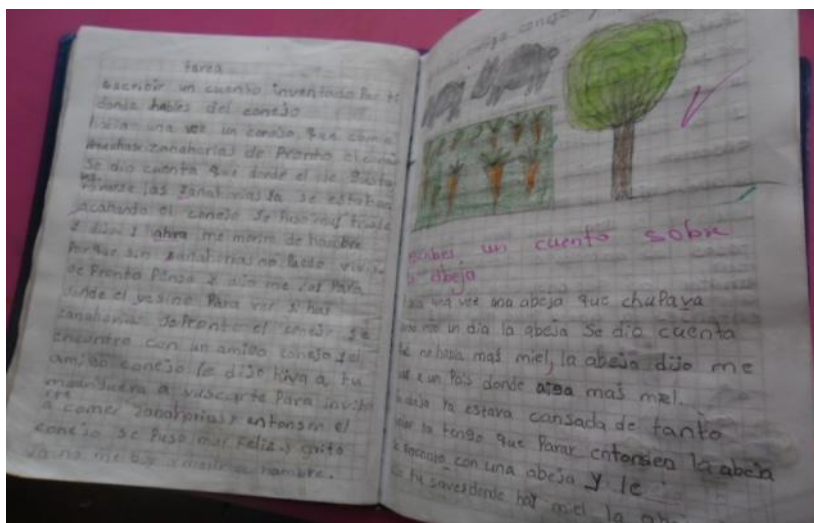 tarea
escribir un cuento inventado Por ti
donde hables del conejo
havia una ves un conejo que comia
muchas zanahorias de Pronto el conejo
se dio cuenta que donde el se
las zanahorias ya se estaban
acabando el conejo se Puso muy triste
y dijo ahora me moriro de hambre
Porque sin zanahorias no Puedo vivir
de Pronto Penso y dijo me Para
donde el vesino Para ver si hay
zanahorias dePronto el conejo se
encontro con un amigo conejo y el
amigo conejo le dijo hiva a tu
madriguera a vuscarte Para invitar
te
a comer zanahorias y entonsen el
conejo se Puso muy feliz y grito
ya no me boy a morir hambre.
un cuento sobre
abeja
una ves una abeja que chupava
un dia la abeja se dio cuenta
no havia mas miel, la abeja dijo me
a un Pais donde aiga mas miel.
abeja ya estava cansada de tanto
tengo que Parar entonsen la abeja
con una abeja y le
tu saves donde hay miel la